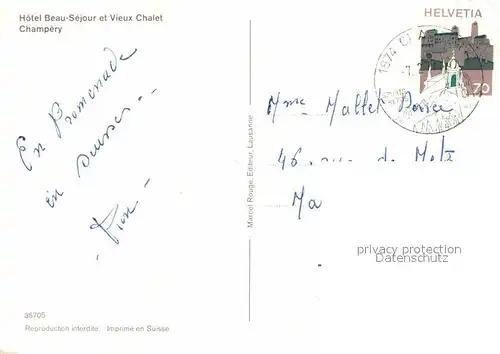 Hôtel Beau-Séjour et Vieux Chalet
Champéry
HELVETIA
70
1874 CHAMPÉRY
En Promenade
en Suisse --
Mme Mallet
46 rue de Metz
Ma
Marcel Rouge, Editeur, Lausanne
privacy protection
Datenschutz
36705
Reproduction interdite Imprimé en Suisse